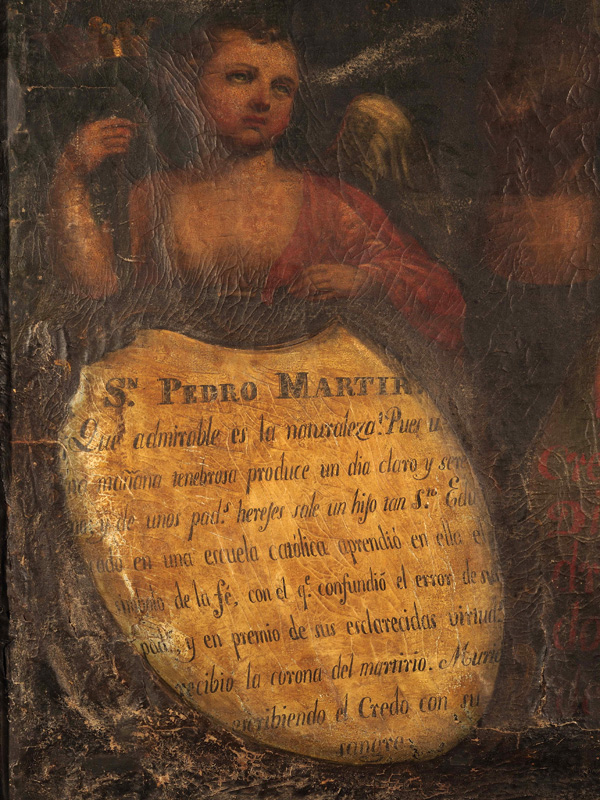 S.ⁿ PEDRO MARTIR.
Que admirable es la naturaleza! Pues u
na mañana tenebrosa produce un dia claro y sere
no, y de unos pad.ˢ herejes sale un hijo tan S.ᵗᵒ Edu
cado en una escuela catolica aprendió en ella el
simbolo de la fé, con el q.ᵉ confundió el error de sus
pad.ˢ, y en premio de sus esclarecidas virtud.ˢ
recibio la corona del martirio. Murio
escribiendo el Credo con su
sangre.
Cre